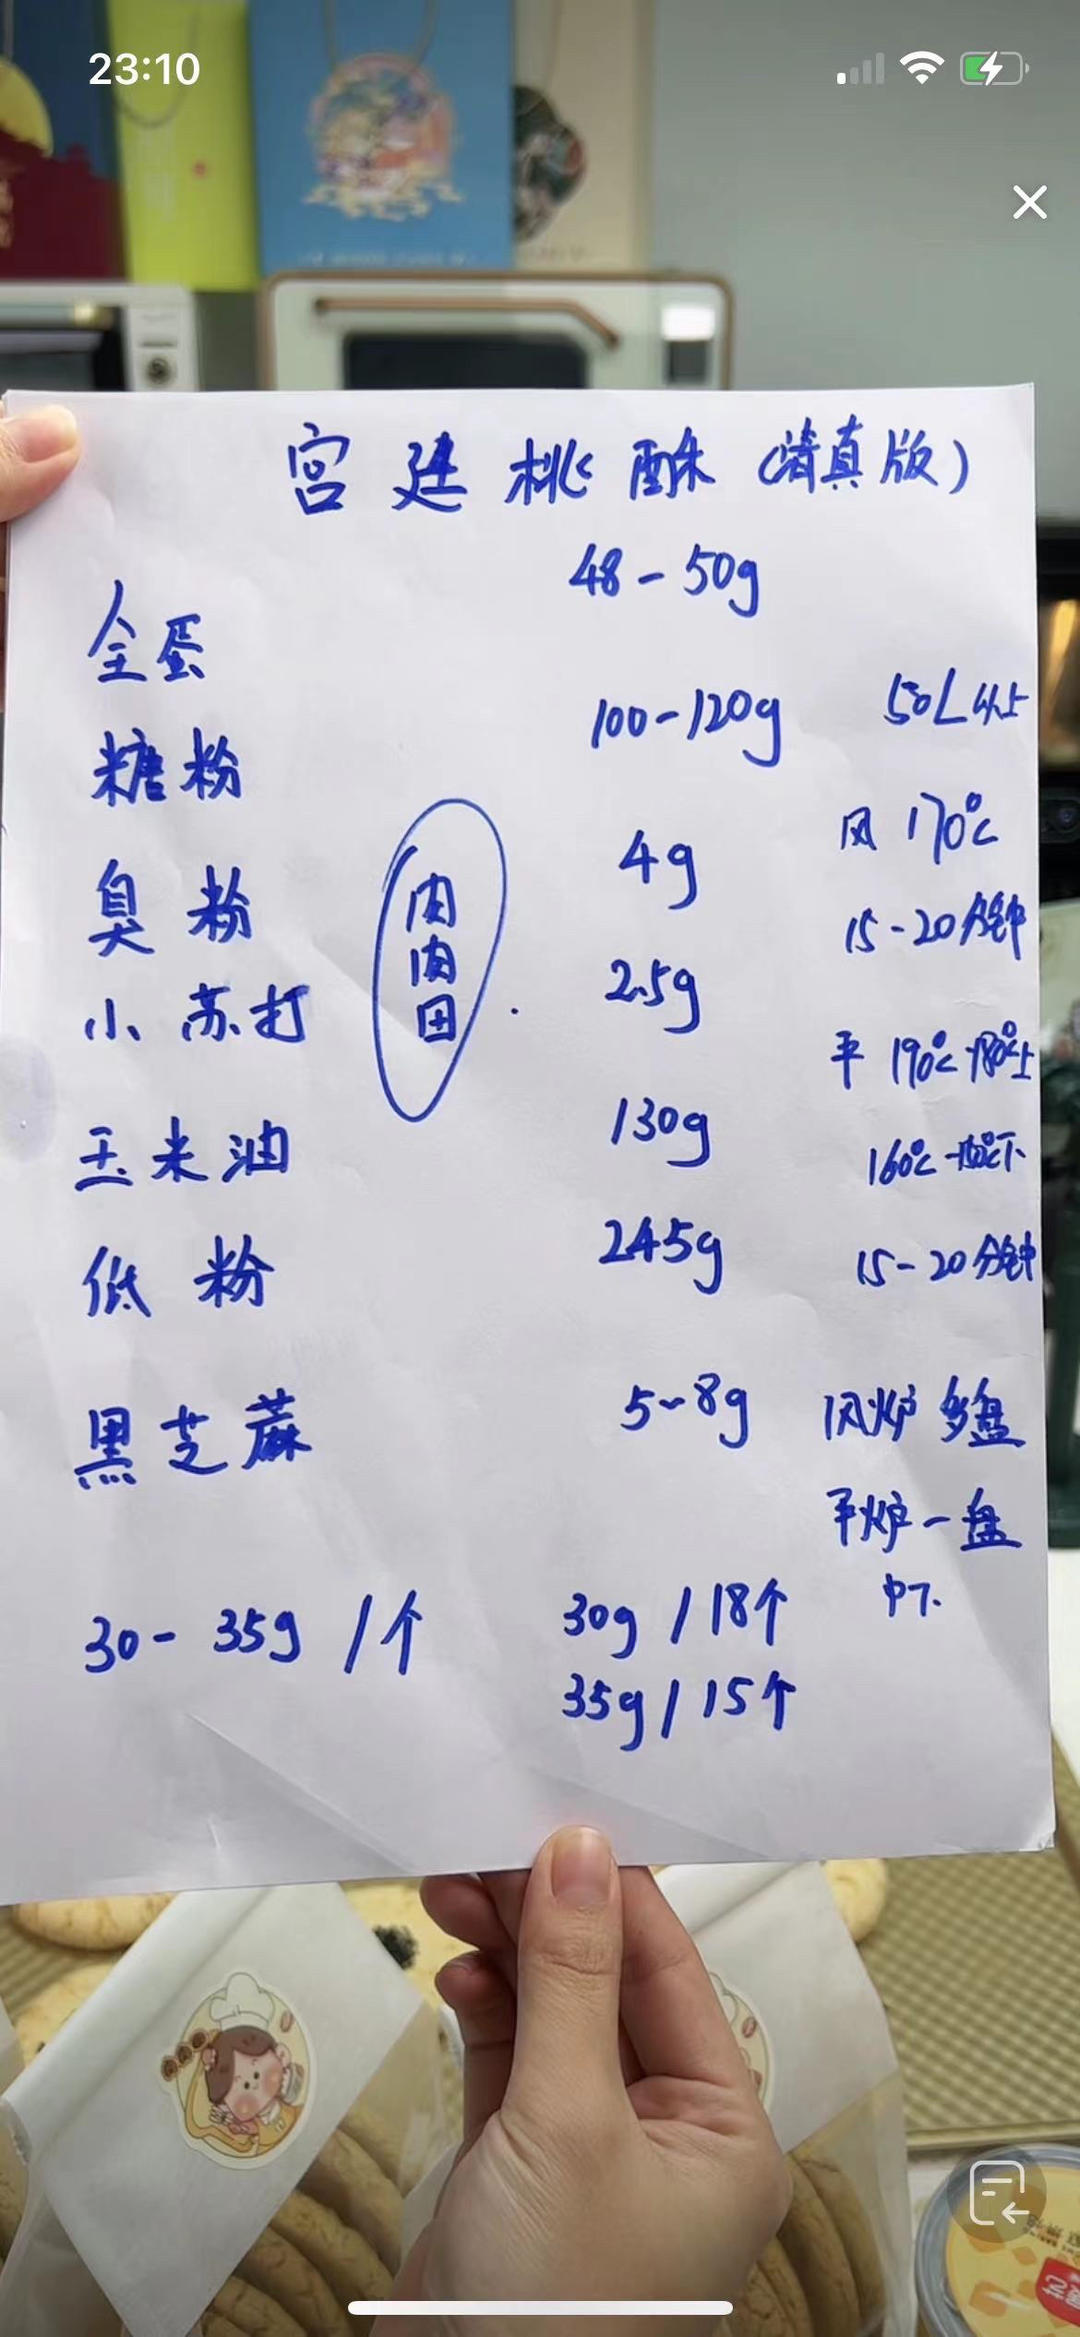 23:10
宫廷桃酥(清真版)
全蛋 48-50g
糖粉 100-120g 50L以上
臭粉 4g 风 170℃
肉肉团
15-20分钟
小苏打 2.5g
平 190℃-180℃上
玉米油 130g
160℃-150℃下
低粉 245g 15-20分钟
黑芝蔴 5-8g 风炉 多盘
平炉一盘
中下
30-35g/个 30g/18个
35g/15个